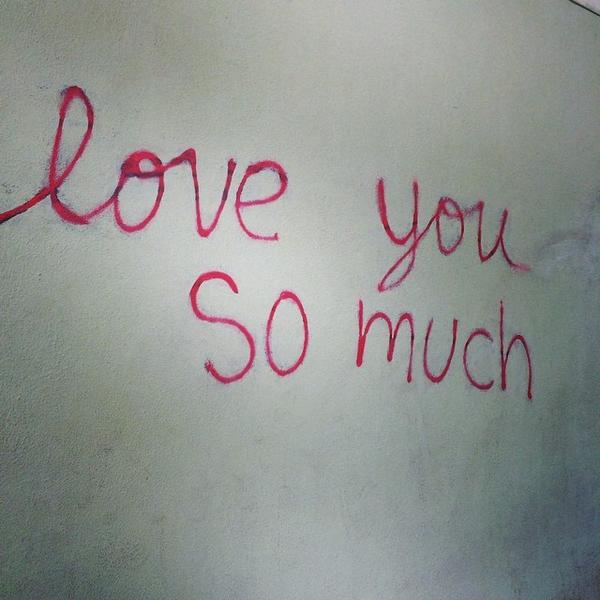 love you
so much